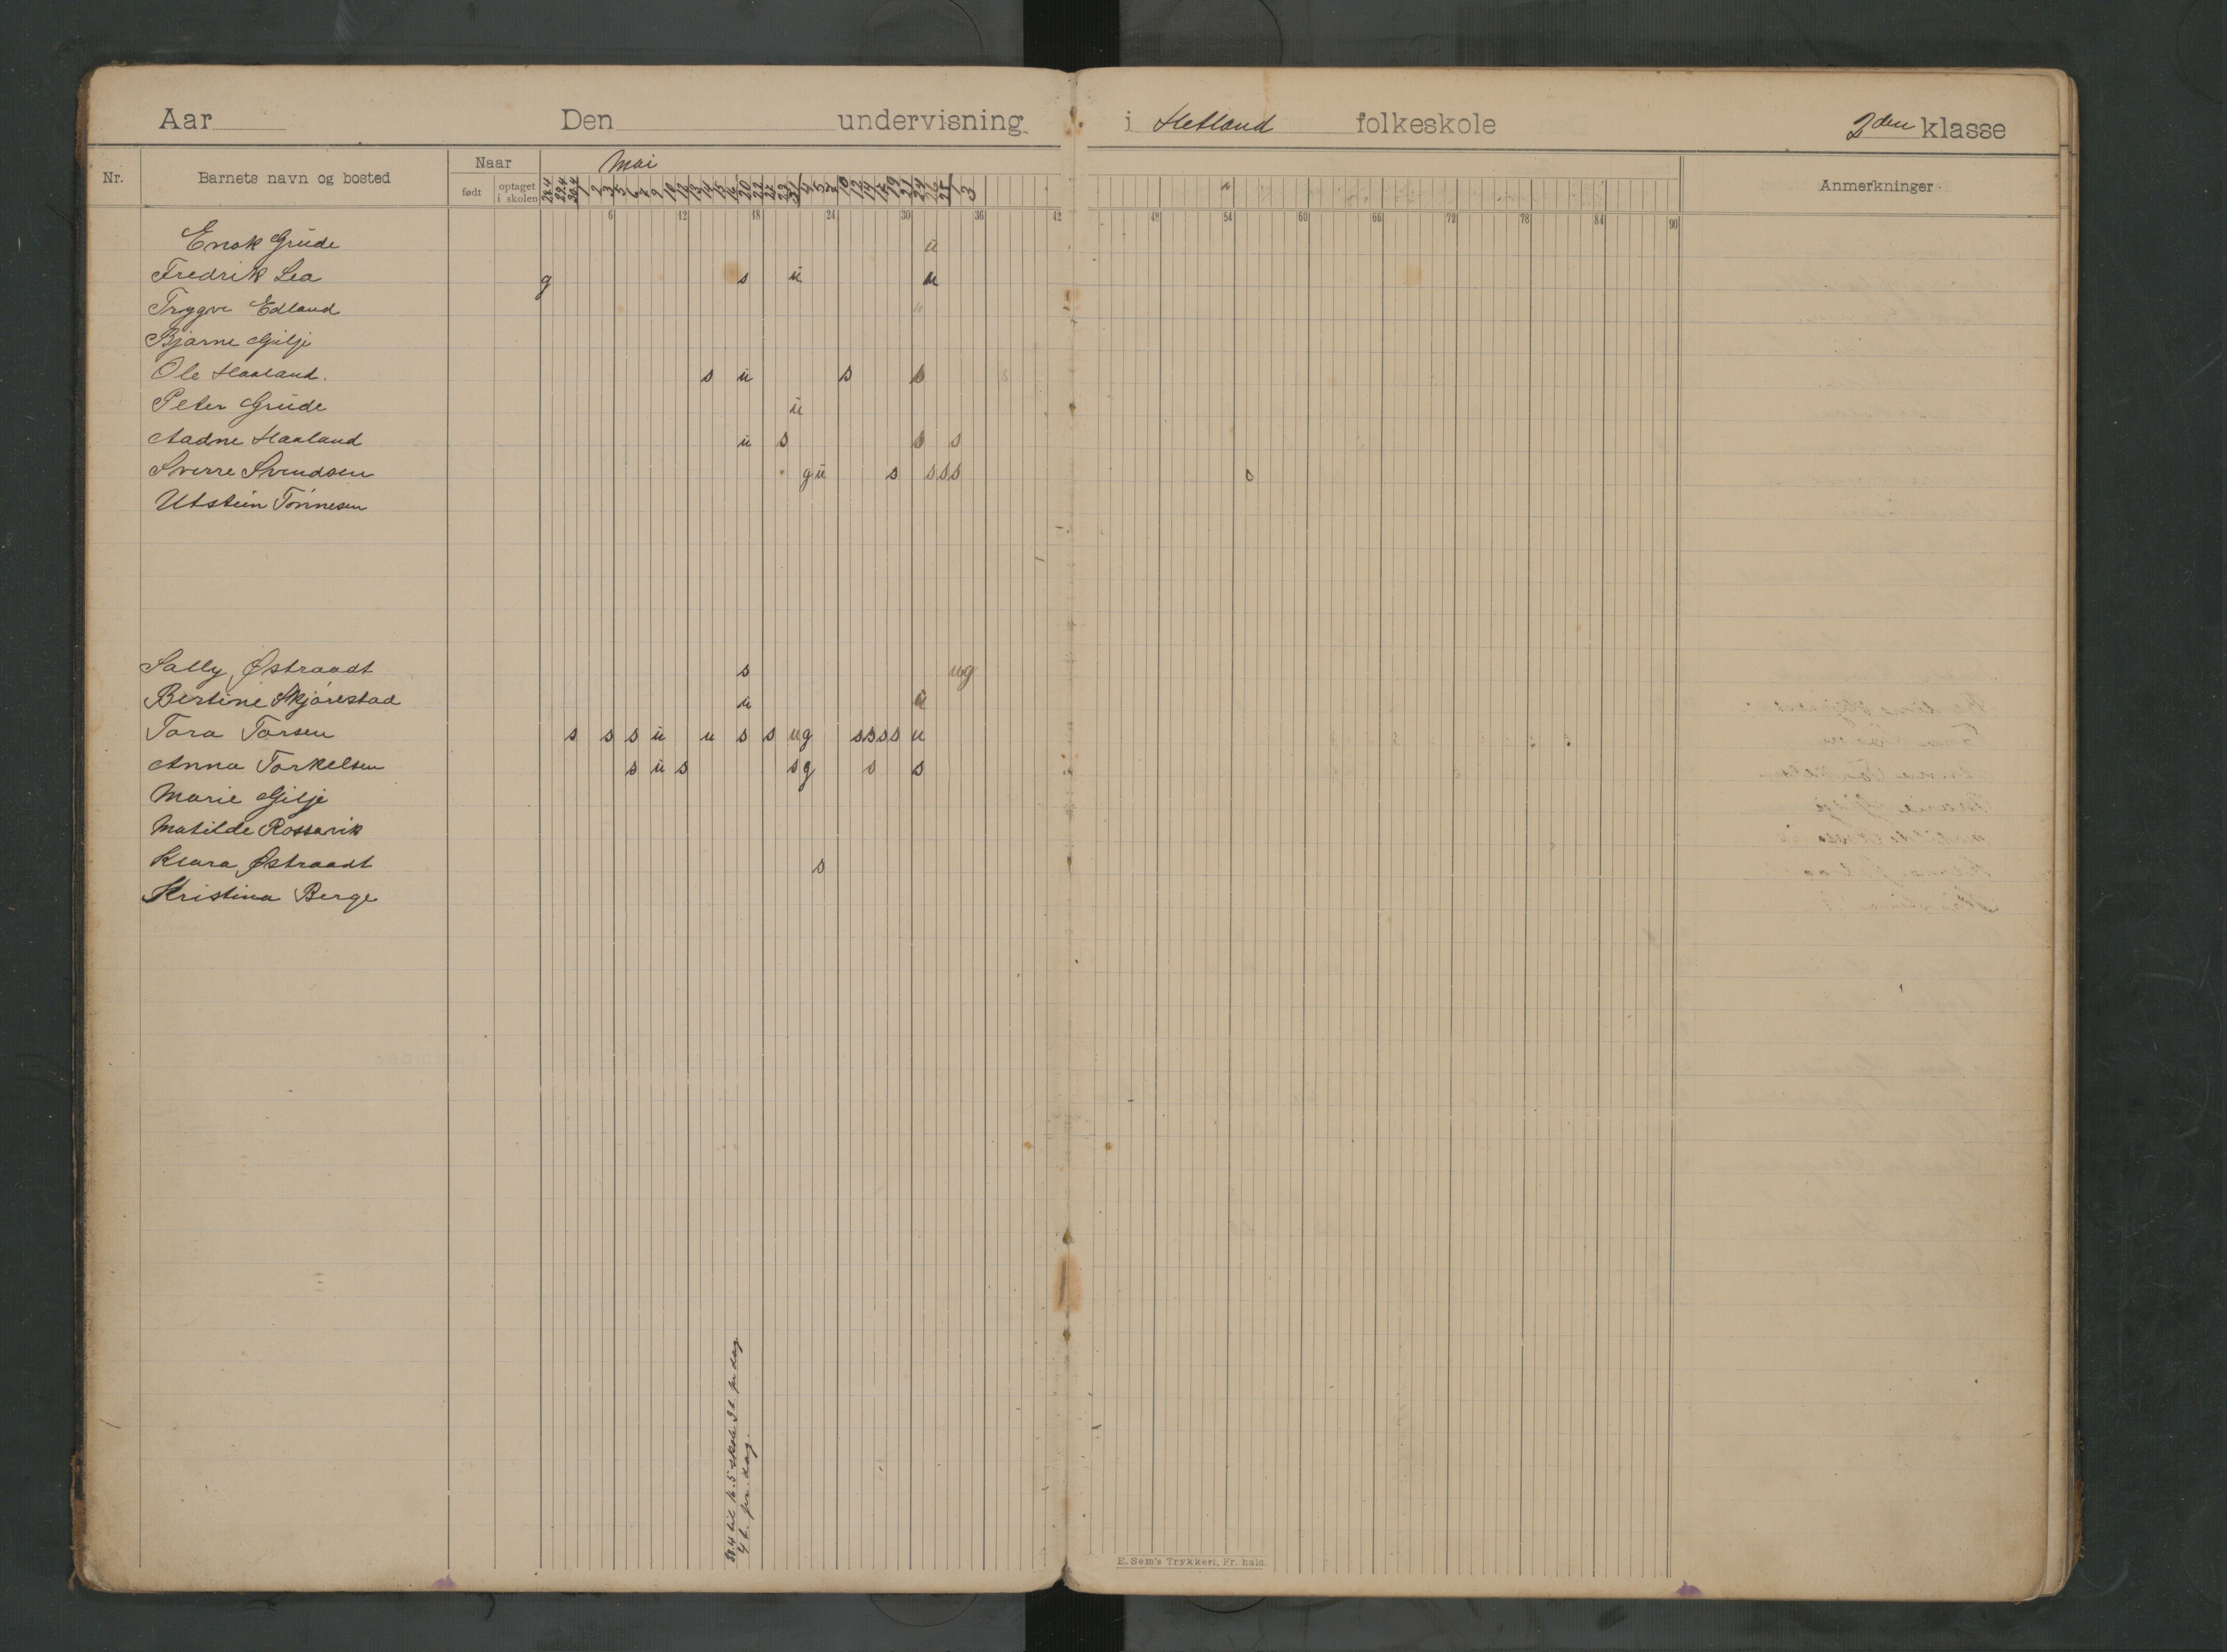 Aar Den undervisning i Hetland folkeskole 2den klasse
Nr. Barnets navn og bosted Naar Mai Anmerkninger
født optaget i skolen
6 12 18 24 30 36 42 48 54 60 66 72 78 84 90
Enok Grude u
Fredrik Lea g s u u
Trygve Edland
Bjarne Gilje
Ole Haaland. s u s s
Peter Grude u
Aadne Haaland u s s s
Sverre Svendsen g u s s s s s
Utstein Tönnesen
Sally Østraadt s u g
Bertine Skjørestad u u
Tora Torsen s s s u u s s u g s s s s u
Anna Torkelsen s u s s g s s
Marie Gilje
Matilde Rossavik
Klara Østraadt s
Kristina Berge
4 t. pr. dag.
E. Sem's Trykkeri, Fr. hald.